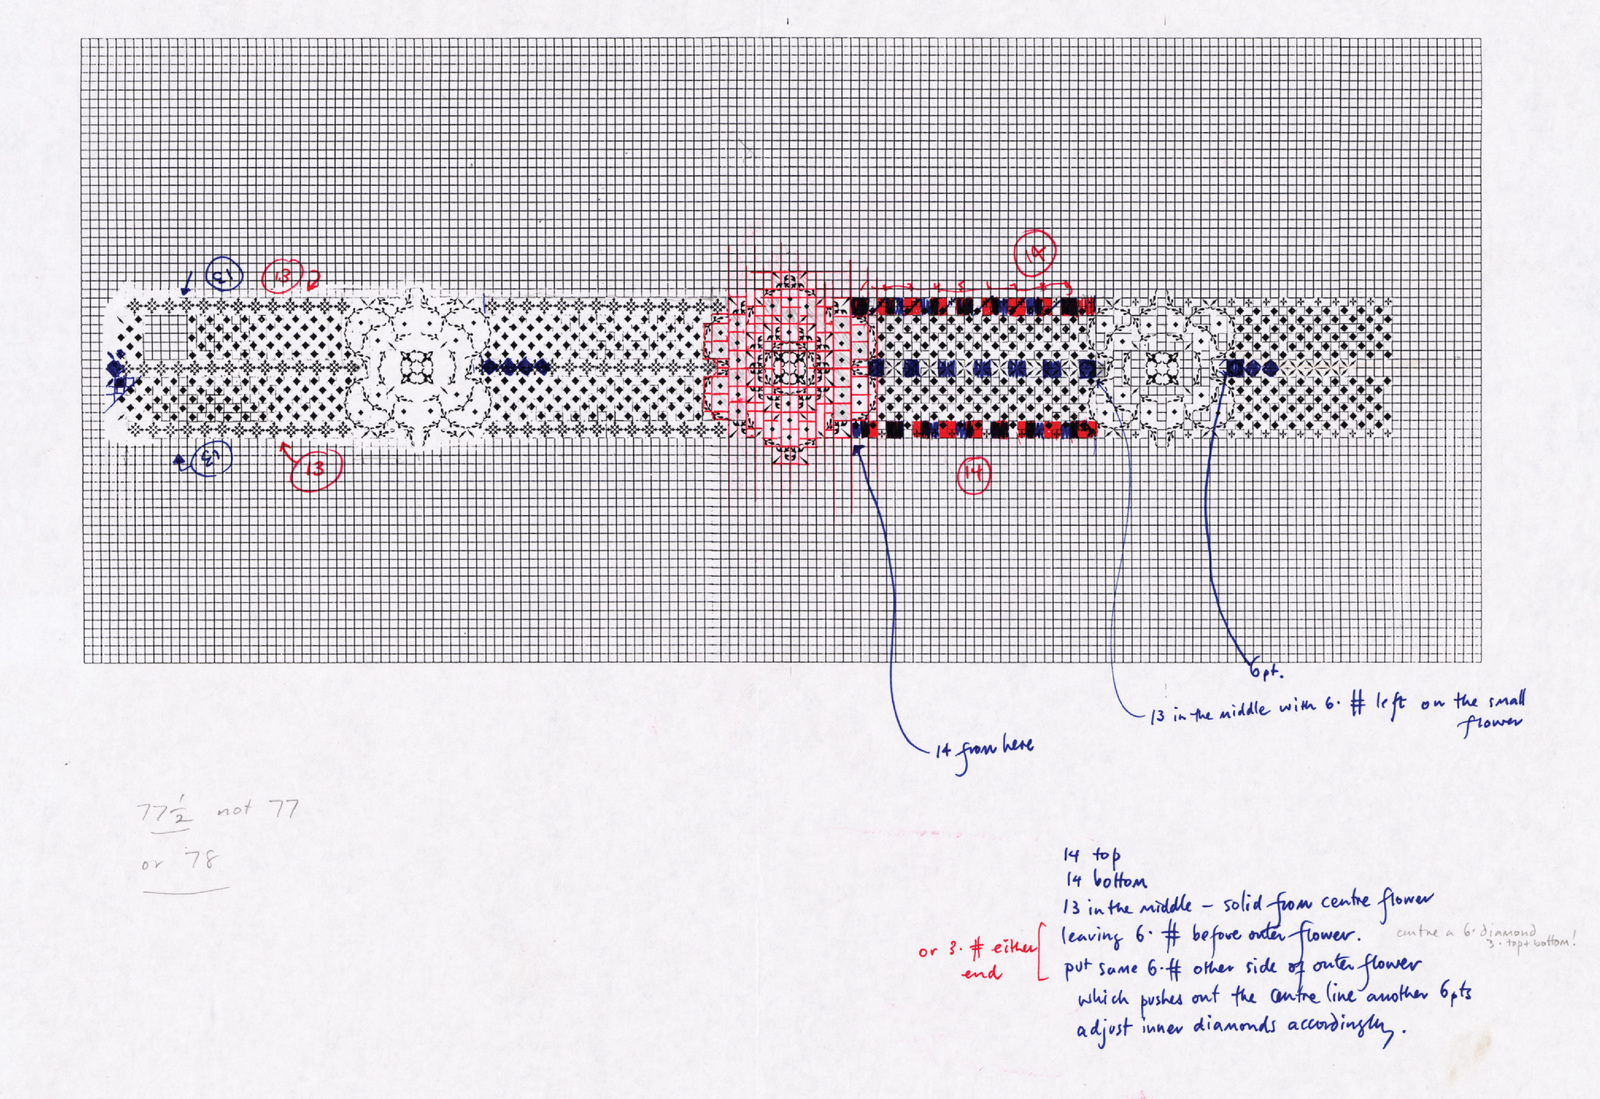 14
13
13
1 2 3 4 5 6 7 8
13
13
14
6pt.
13 in the middle with 6. # left on the small
flower
14 from here
77½ not 77
or 78
14 top
14 bottom
13 in the middle – solid from centre flower
leaving 6. # before outer flower.
centre a 6. diamond
3. top + bottom!
or 3. # either
end
put same 6.# other side of outer flower
which pushes out the centre line another 6pts
adjust inner diamonds accordingly.